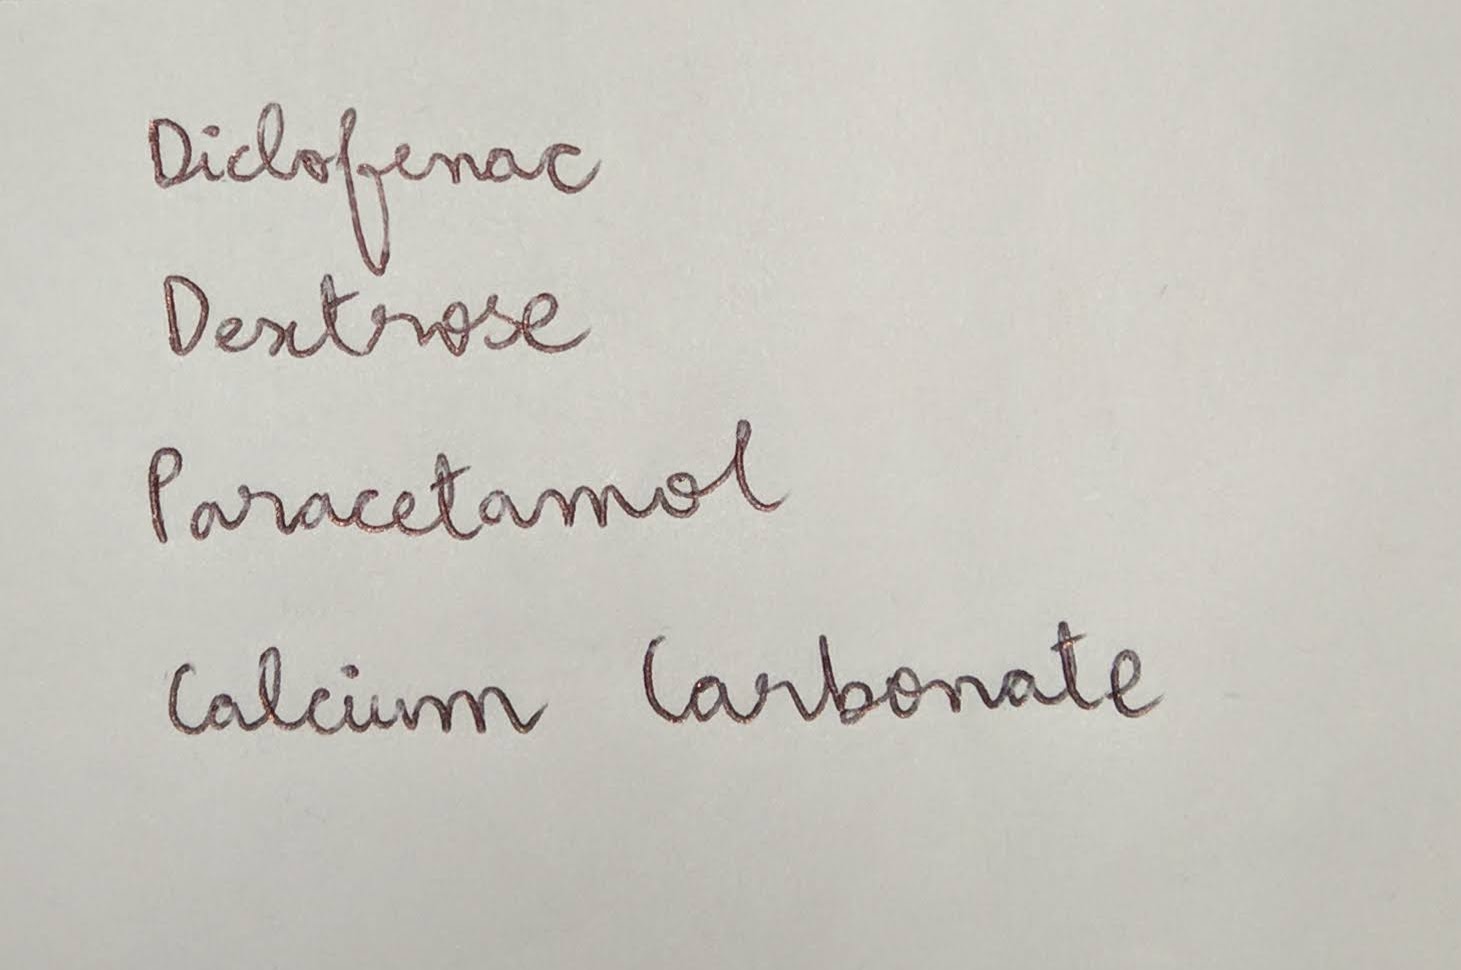 Diclofenac
Dextrose
Paracetamol
Calcium Carbonate